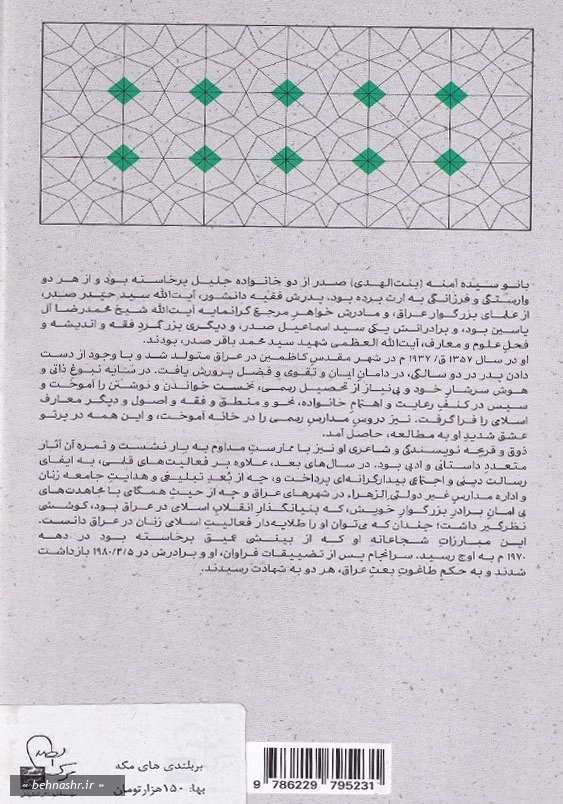 بانو سیده آمنه (بنت‌الهدی) صدر از دو خانواده جلیل برخاسته بود و از هر دو
وارستگی و فرزانگی به ارث برده بود. پدرش فقیه دانشور، آیت‌الله سید حیدر صدر،
از علمای بزرگوار عراق، و مادرش خواهر مرجع گرانمایه آیت‌الله شیخ محمدرضا آل
یاسین بود، و برادرانش یکی سید اسماعیل صدر، و دیگری بزرگمرد فقه و اندیشه و
فحل علوم و معارف، آیت‌الله العظمی شهید سید محمد باقر صدر، بودند.
او در سال ۱۳۵۷ ق/ ۱۹۳۷ م در شهر مقدس کاظمین در عراق متولد شد و با وجود از دست
دادن پدر در دو سالگی، در دامانِ ایمان و تقوی و فضل پرورش یافت. در سایه نبوغ ذاتی و
هوش سرشار خود و بی‌نیاز از تحصیل رسمی، نخست خواندن و نوشتن را آموخت و
سپس در کنفِ رعایت و اهتمام خانواده، نحو و منطق و فقه و اصول و دیگر معارف
اسلامی را فرا گرفت. نیز دروس مدارس رسمی را در خانه آموخت، و این همه در پرتو
عشق شدیدِ او به مطالعه، حاصل آمد.
ذوق و قریحه نویسندگی و شاعری او نیز با ممارستِ مداوم به بار نشست و ثمره آن آثار
متعددِ داستانی و ادبی بود. در سال‌های بعد، علاوه بر فعالیت‌های قلمی، به ایفای
رسالت دینی و اجتماعی بیدارگرانه‌ای پرداخت و، چه از بُعدِ تبلیغی و هدایتِ جامعه زنان
و اداره مدارسِ غیر دولتی الزهراء در شهرهای عراق و چه از حیثِ همگامی با مجاهدت‌های
بی امانِ برادرِ بزرگوارِ خویش، که بنیانگذار انقلاب اسلامی در عراق بود، کوششی
نظرگیر داشت؛ چندان که می‌توان او را طلایه‌دار فعالیت اسلامی زنان در عراق دانست.
این مبارزات شجاعانه او که از بینشی عمیق برخاسته بود در دهه
۱۹۷۰ م به اوج رسید. سرانجام پس از تضییقات فراوان، او و برادرش در ۱۹۸۰/۴/۵ بازداشت
شدند و به حکمِ طاغوتِ بعثِ عراق، هر دو به شهادت رسیدند.
بربلندی های مکه
بها: ۱۵۰ هزارتومان
« behnashr.ir »
9 786229 795231